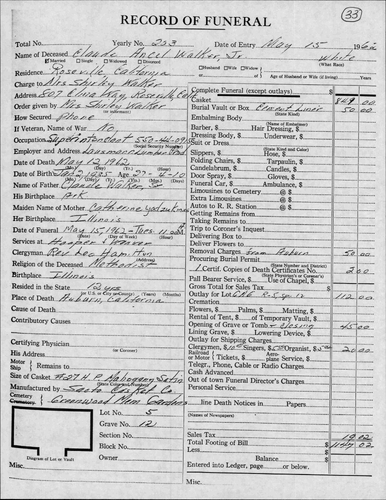 RECORD OF FUNERAL
33
Total No. Yearly No. 253 Date of Entry May 15 1962
Name of Deceased Claude Ancil Walker, Jr. White
(What Race)
Married Single Widowed Divorced Husband Wife Widow of
Age of Husband or Wife (if living)
Residence Roseville, California
Charge to Mrs Shirley Walker
Address 507 Elma Way, Roseville, Calif.
Order given by Mrs Shirley Walker
How Secured phone
If Veteran, War of No.
Occupation
(Social Security Number)
Employer and Address
Date of Death May 12 1962
Date of Birth
Name of Father Claude Walker Sr
His Birthplace Ark
Maiden Name of Mother Catherine
Her Birthplace Illinois
Date of Funeral May 15, 1962 Tues 11:00
Services at Hooper & Weaver
Clergyman Rev. Leo Hamilton
Religion of the Deceased Methodist
Birthplace Illinois
Resided in the State 12 yrs
(In U.S. or City or County) (Years) (Months)
Place of Death Auburn, California
Cause of Death
Contributory Causes
Certifying Physician
His Address
Motor
Ship Remains to
Size of Casket
Manufactured by Casket Co.
Cemetery
Crematory Greenwood Mem Gardens
Lot No. 5
Grave No. 12
Section No.
Block No.
Owner
Diagram of Lot or Vault
Misc.
Complete Funeral (except outlays) $
Casket
Burial Vault or Box Cement Liner 50.00
(State Kind)
Embalming Body
(Name of Embalmer)
Barber, $ Hair Dressing, $
Dressing Body, $ Underwear, $
Suit or Dress
(State Kind and Color)
Slippers, $ Hose, $
Folding Chairs, $ Tarpaulin, $
Candelabrum, $ Candles, $
Door Spray, $ Gloves, $
Funeral Car, $ Ambulance, $
Limousines to Cemetery @ $
Extra Limousines @ $
Autos to R. R. Station @ $
Getting Remains from
Taking Remains to
Trip to Coroner's Inquest
Delivering Box to
Deliver Flowers to
Removal Charges from Auburn 50.00
Procuring Burial Permit
(State Number and District)
1 Certif. Copies of Death Certificates No. 2.00
(State Physician's or Coroner's)
Pall Bearer Service, $ Use of Chapel, $
Gross Total for Sales Tax $
Outlay for Lot 112.00
Cremation
Flowers, $ Palms, $ Matting, $
Rental of Tent, $ of Temporary Vault, $
Opening of Grave or Tomb & Closing 45.00
Lining Grave, $ Lowering Device, $
Outlay for Shipping Charges
Clergymen, $ Singers, $ Organist, $ 20.00
Railroad or Motor Tickets, $ Aeroplane Service, $
Telegr., Phone, Cable or Radio Charges
Cash Advanced
Out of town Funeral Director's Charges
Personal Service
line Death Notices in Papers
(Names of Newspapers)
Sales Tax
Total Footing of Bill $
Less
Balance $
Entered into Ledger, page or below.
Misc.